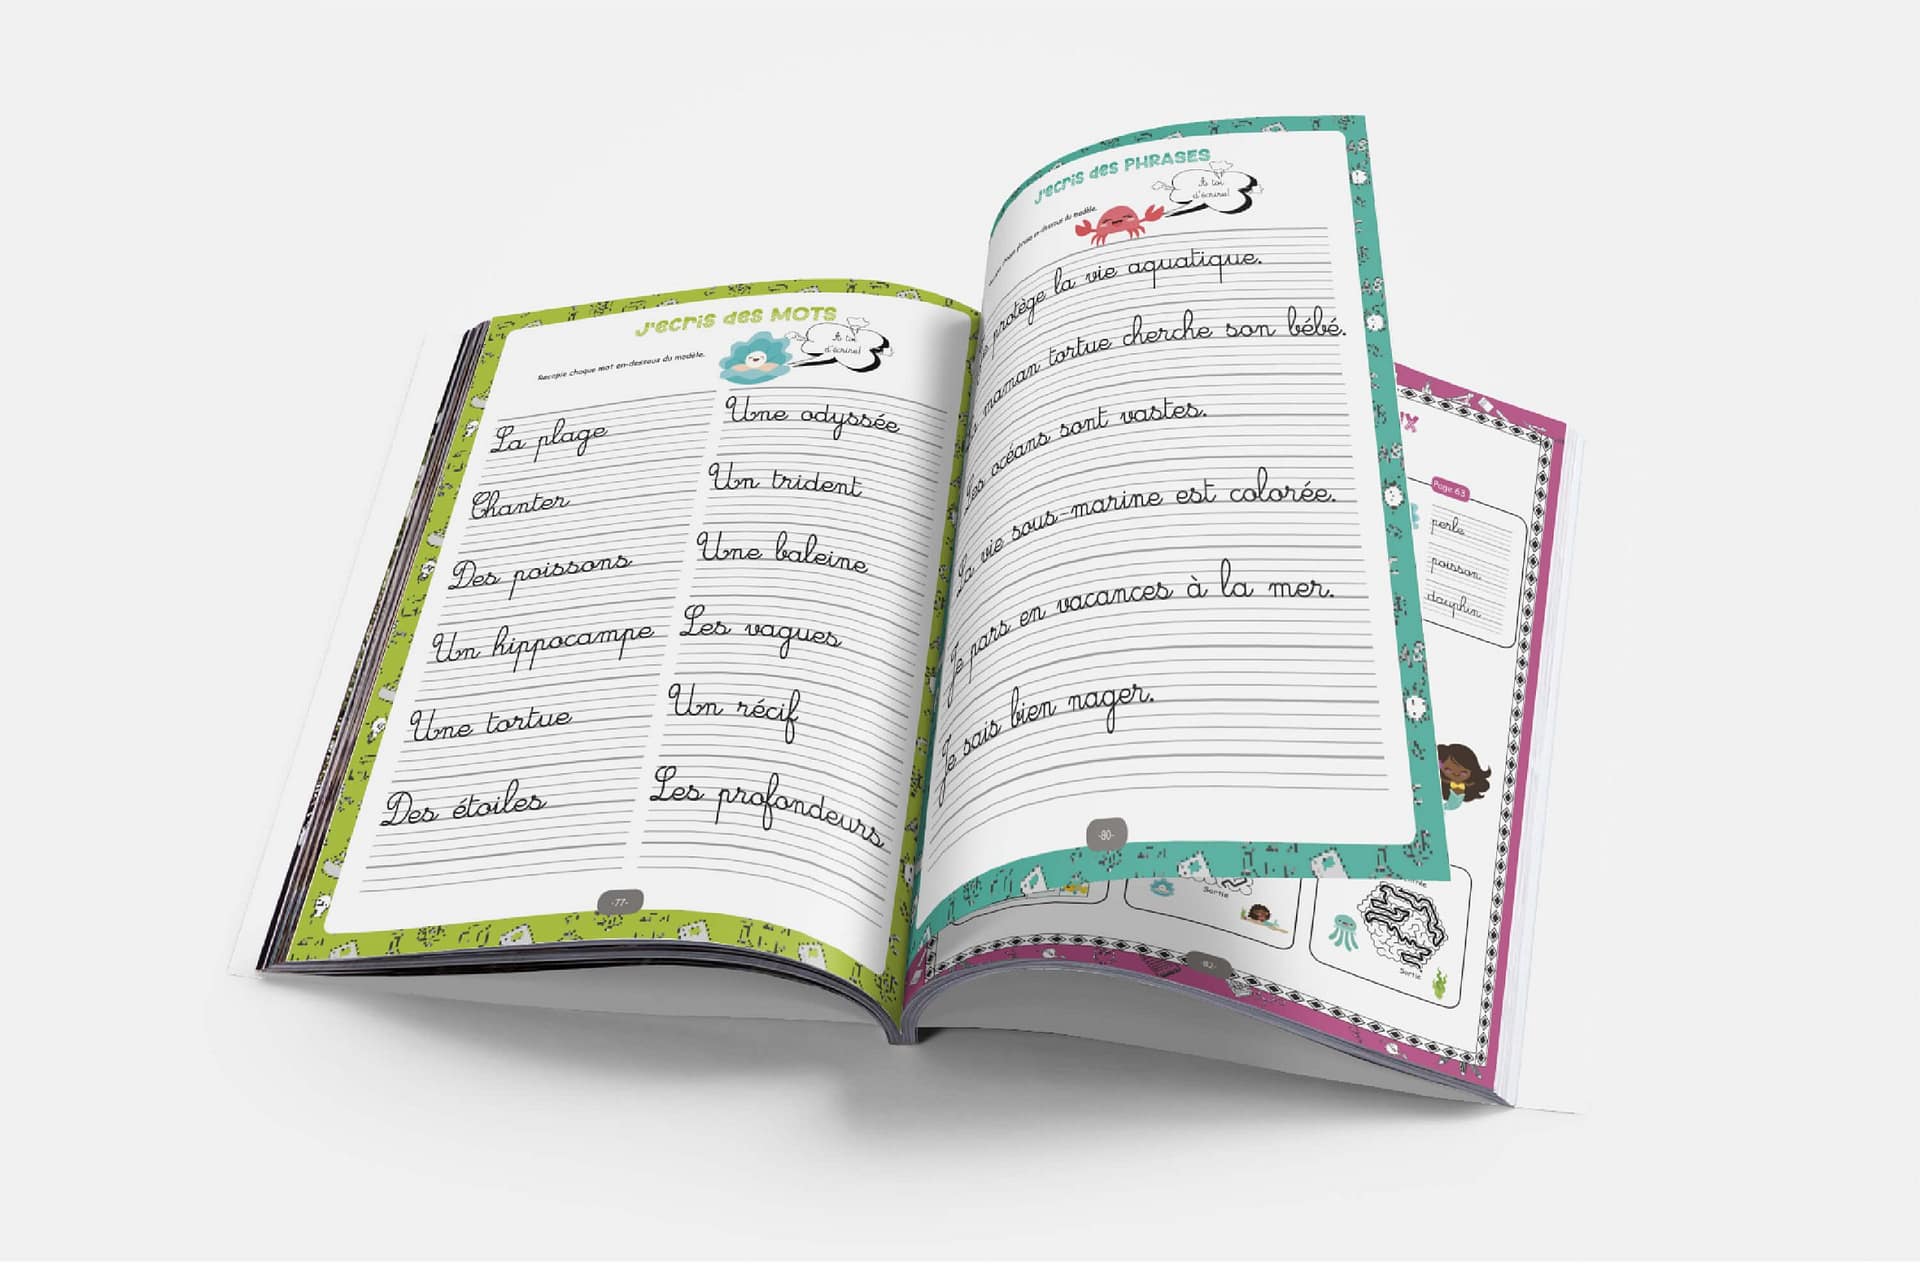 J'ecris des MOTS
Recopie chaque mot en-dessous du modèle.
A toi
d'écrire!
La plage
Chanter
Des poissons
Un hippocampe
Une tortue
Des étoiles
Une odyssée
Un trident
Une baleine
Les vagues
Un récif
Les profondeurs
-77-
J'ecris des PHRASES
chaque phrase en-dessous du modèle.
A toi
d'écrire!
protège la vie aquatique.
maman tortue cherche son bébé.
Les océans sont vastes.
La vie sous-marine est colorée.
Je pars en vacances à la mer.
Je sais bien nager.
-80-
UX
Page 63
perle
poisson
dauphin
Sortie
Sortie
-82-